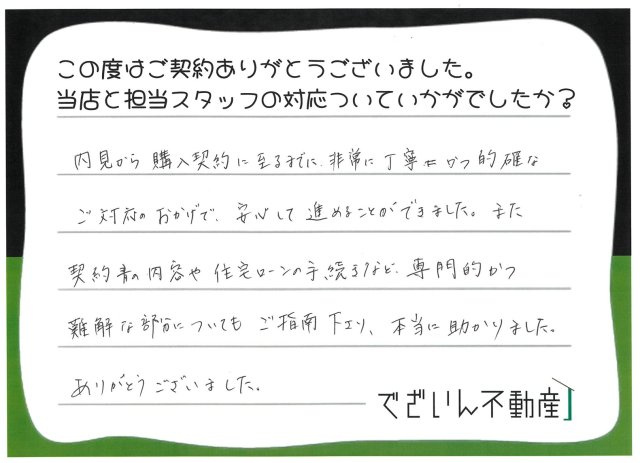 この度はご契約ありがとうございました。
当店と担当スタッフの対応ついていかがでしたか？
内見から購入契約に至るまでに、非常に丁寧かつ的確な
ご対応のおかげで、安心して進めることができました。また
契約書の内容や住宅ローンの手続きなど、専門的かつ
難解な部分についてもご指南下さり、本当に助かりました。
ありがとうございました。
でざいん不動産